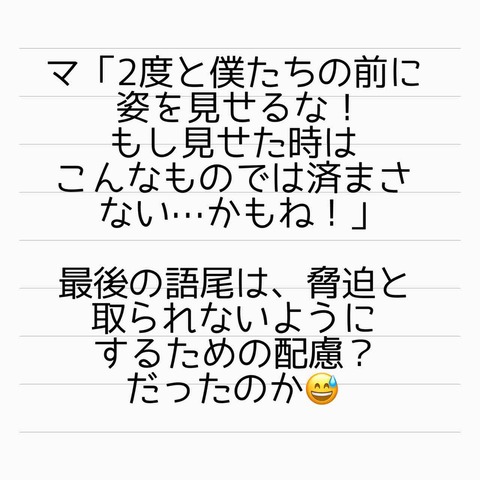 マ「2度と僕たちの前に
姿を見せるな！
もし見せた時は
こんなものでは済まさ
ない…かもね！」
最後の語尾は、脅迫と
取られないように
するための配慮？
だったのか😅